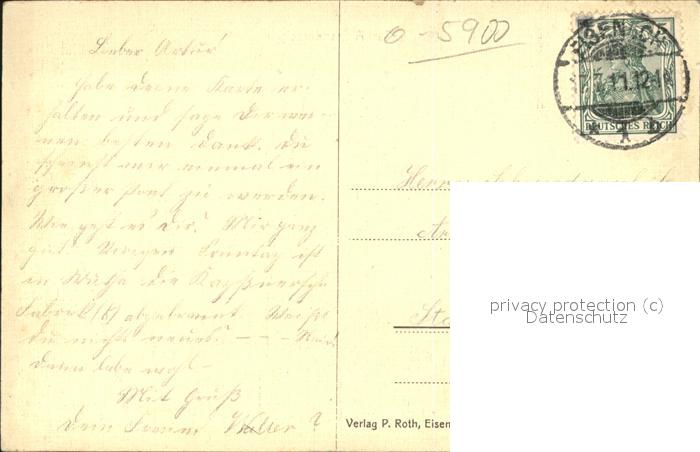 Lieber Artur!
habe deine Karte er-
halten und sage dir mei-
nen besten Dank. Du
scheinst mir einmal ein
großer Poet zu werden.
Wie geht es Dir? Mir ganz
gut. Vorigen Sonntag ist
in Wutha die
Fabrik (K) abgebrannt. Weißt
du nichts neues? – – –
Dann lebe wohl –
Mit Gruß
Dein Freund Walter?
0 - 5900
EISENACH
11.12.
DEUTSCHES REICH
Herrn
Verlag P. Roth, Eisen
privacy protection (c)
Datenschutz